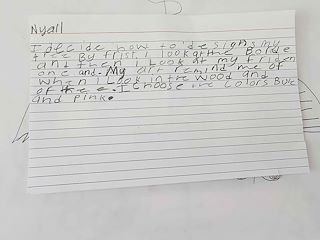 Nyall
I decide how to designs my
tree By frist I look at the Bolde
and then I Look at my friden
one and. My art remind me of
when I Look in the wood and
of the e. I choose the Colors Bule
and pink.